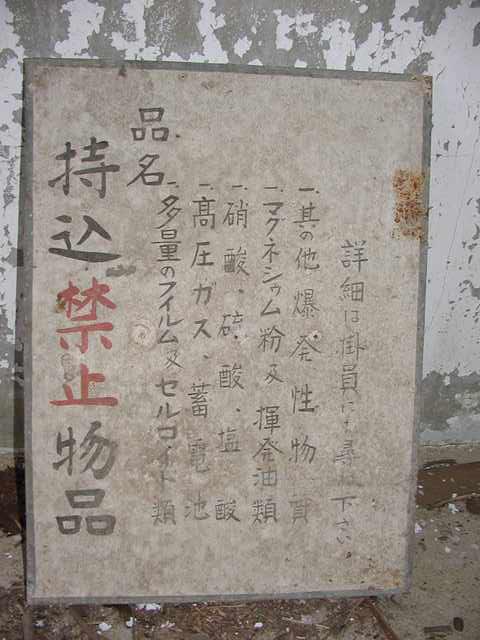 持込禁止物品
品名
一、多量のフイルム及セルロイド類
一、高圧ガス、蓄電池
一、硝酸、硫酸、塩酸
一、マグネシウム粉及揮発油類
一、其の他爆発性物質
詳細は掛員にお尋ね下さい。